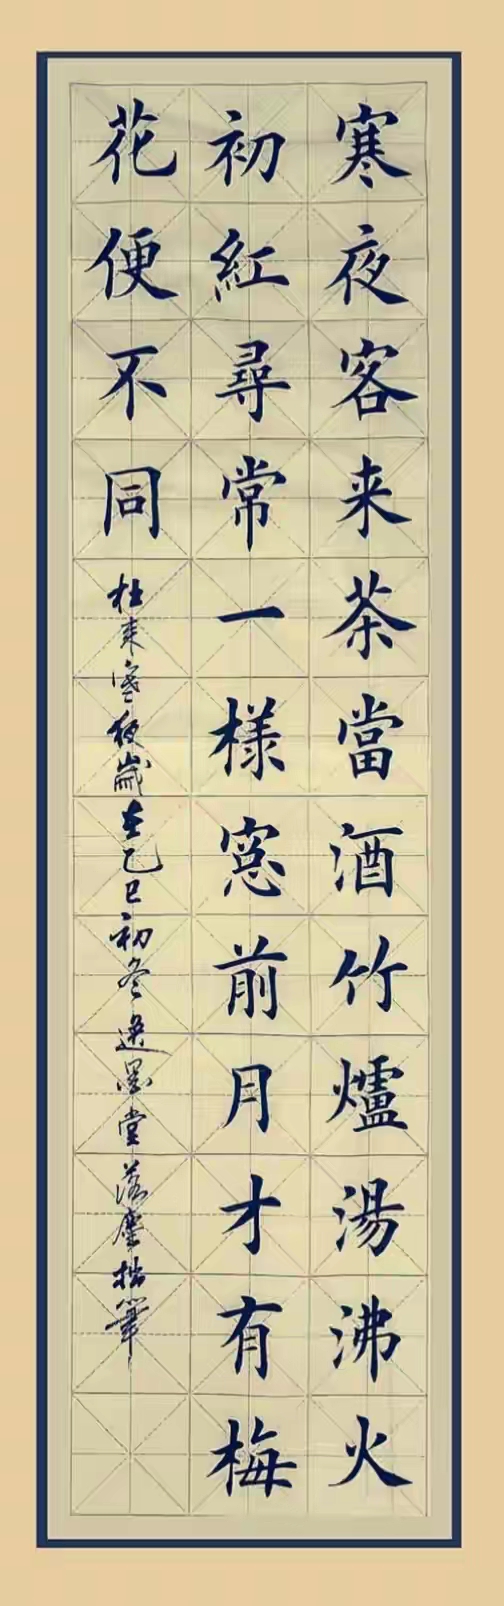 寒夜客来茶當酒竹爐湯沸火
初紅尋常一樣窓前月才有梅
花便不同
杜耒寒夜歲在乙巳初冬逸墨堂落塵拙筆